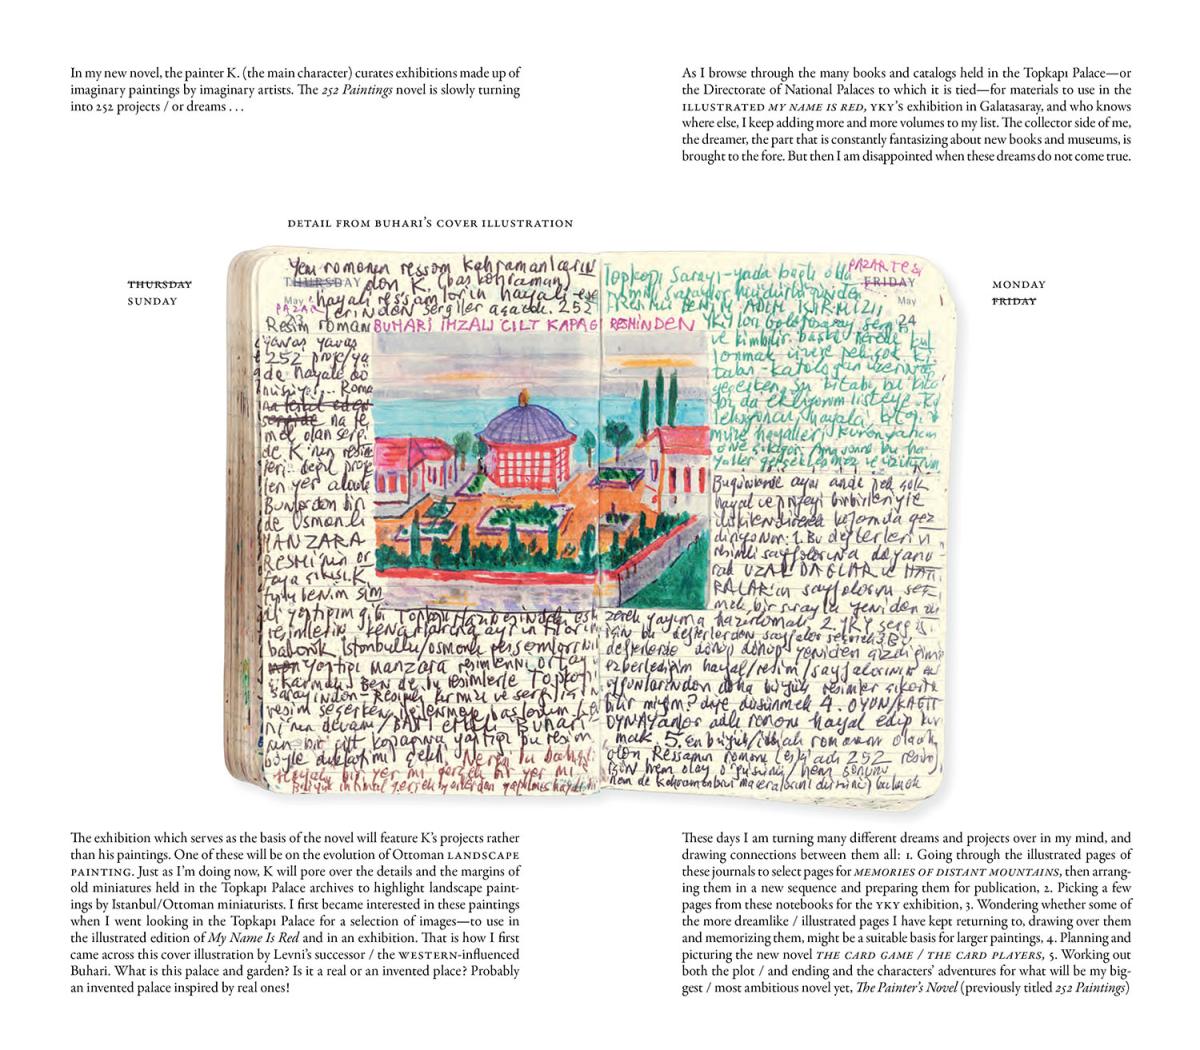 In my new novel, the painter K. (the main character) curates exhibitions made up of
imaginary paintings by imaginary artists. The 252 Paintings novel is slowly turning
into 252 projects / or dreams . . .
As I browse through the many books and catalogs held in the Topkapı Palace—or
the Directorate of National Palaces to which it is tied—for materials to use in the
ILLUSTRATED MY NAME IS RED, YKY's exhibition in Galatasaray, and who knows
where else, I keep adding more and more volumes to my list. The collector side of me,
the dreamer, the part that is constantly fantasizing about new books and museums, is
brought to the fore. But then I am disappointed when these dreams do not come true.
DETAIL FROM BUHARI'S COVER ILLUSTRATION
THURSDAY
SUNDAY
MONDAY
FRIDAY
Yeni romanın ressam kahramanlarının
THURSDAY
olan K. (baş kahraman)
May
hayali ressamların hayali
PAZAR
lerinden sergiler açacak. 252
23
Resim roman
BUHARİ İMZALI CİLT KAPAĞI RESMİNDEN
yavaş yavaş
252 proje/ya
da hayale dö
nüşüyor... Roma
mel olan sergi
de K'nın resim
leri değil proje
len yer alacak
Bunlardan biri
de Osmanlı
MANZARA
RESMİ'nin or
taya çıkışı. K
tıpkı benim şim
di yaptığım gibi Topkapı
İstanbullu/Osmanlı
yaptığı manzara resimlerini ortaya
çıkarmak. Ben de bu resimlerle Topkapı
Sarayından
resim seçerken ilgilenmeye başladım.
nin devamı / BATI ETKİLİ Buhari
nin bir cilt kapağına yaptığı bu resim
böyle dikkatimi çekti. Neresi bu bahçe?
Hayali bir yer mi gerçek bir yer mi
PAZARTESİ
Topkapı Sarayı-yada bağlı oldu
FRIDAY
May
24
RESİMLİ BENİM ADIM KIRMIZI
ve kimbilir başka nerede kul
lanmak üzere pek çok ki
tabı-kataloğun üzerinden
geçerken, şu kitabı bu kita
bı da ekliyorum listeye. Ko
leksiyoncu, hayalci, kitap ve
müze hayalleri kuran yanım
öne çıkıyor. Ama sonra bu ha
yaller gerçekleşmez ve üzülürüm
Bugünlerde aynı anda pek çok
hayal ve projeyi birbirleriyle
ilişkilendirerek kafamda gez
diriyorum: 1. Bu defterlerin
resimli sayfalarına dayana
rak UZAK DAĞLAR ve HATI
RALAR'ın sayfalarını seç
mek, bir sırayla yeniden di
zerek yayına hazırlamak 2. YKY sergisi
için bu defterlerden sayfalar seçmek 3. Bu
defterlerde dönüp dönüp yeniden çizdiğim
ezberlediğim hayal/resim/sayfalarının
daha büyük resimler çıkarta
bilir miyim? diye düşünmek 4. OYUN/KAĞIT
OYNAYANLAR adlı romanı hayal edip kur
mak. 5. en büyük/iddialı romanım olacak
olan, Ressamın romanı (eski adı 252 resim)
için hem olay örgüsünü/hem sonunu
hem de kahramanların maceralarını düşünüp bulmak
The exhibition which serves as the basis of the novel will feature K's projects rather
than his paintings. One of these will be on the evolution of Ottoman LANDSCAPE
PAINTING. Just as I'm doing now, K will pore over the details and the margins of
old miniatures held in the Topkapı Palace archives to highlight landscape paint-
ings by Istanbul/Ottoman miniaturists. I first became interested in these paintings
when I went looking in the Topkapı Palace for a selection of images—to use in
the illustrated edition of My Name Is Red and in an exhibition. That is how I first
came across this cover illustration by Levni's successor / the WESTERN-influenced
Buhari. What is this palace and garden? Is it a real or an invented place? Probably
an invented palace inspired by real ones!
These days I am turning many different dreams and projects over in my mind, and
drawing connections between them all: 1. Going through the illustrated pages of
these journals to select pages for MEMORIES OF DISTANT MOUNTAINS, then arrang-
ing them in a new sequence and preparing them for publication, 2. Picking a few
pages from these notebooks for the YKY exhibition, 3. Wondering whether some of
the more dreamlike / illustrated pages I have kept returning to, drawing over them
and memorizing them, might be a suitable basis for larger paintings, 4. Planning and
picturing the new novel THE CARD GAME / THE CARD PLAYERS, 5. Working out
both the plot / and ending and the characters' adventures for what will be my big-
gest / most ambitious novel yet, The Painter's Novel (previously titled 252 Paintings)